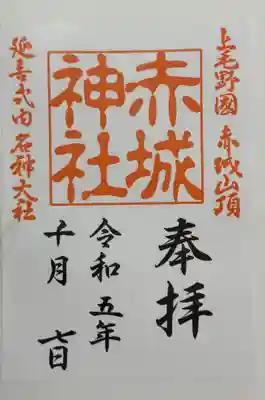 上毛野國 赤城山頂
奉拝
赤城
神社
令和五年
十月 七日
延喜式内名神大社